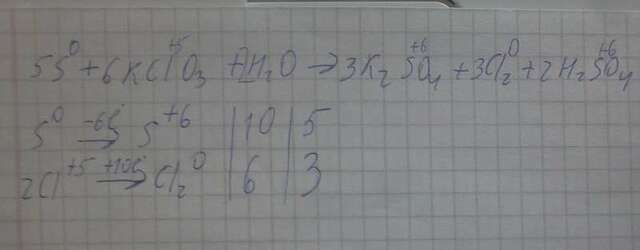 5S⁰ + 6KCl⁺⁵O₃ + H₂O → 3K₂S⁺⁶O₄ + 3Cl₂⁰ + 2H₂S⁺⁶O₄
S⁰ -6ē → S⁺⁶ | 10 | 5
2Cl⁺⁵ +10ē → Cl₂⁰ | 6 | 3